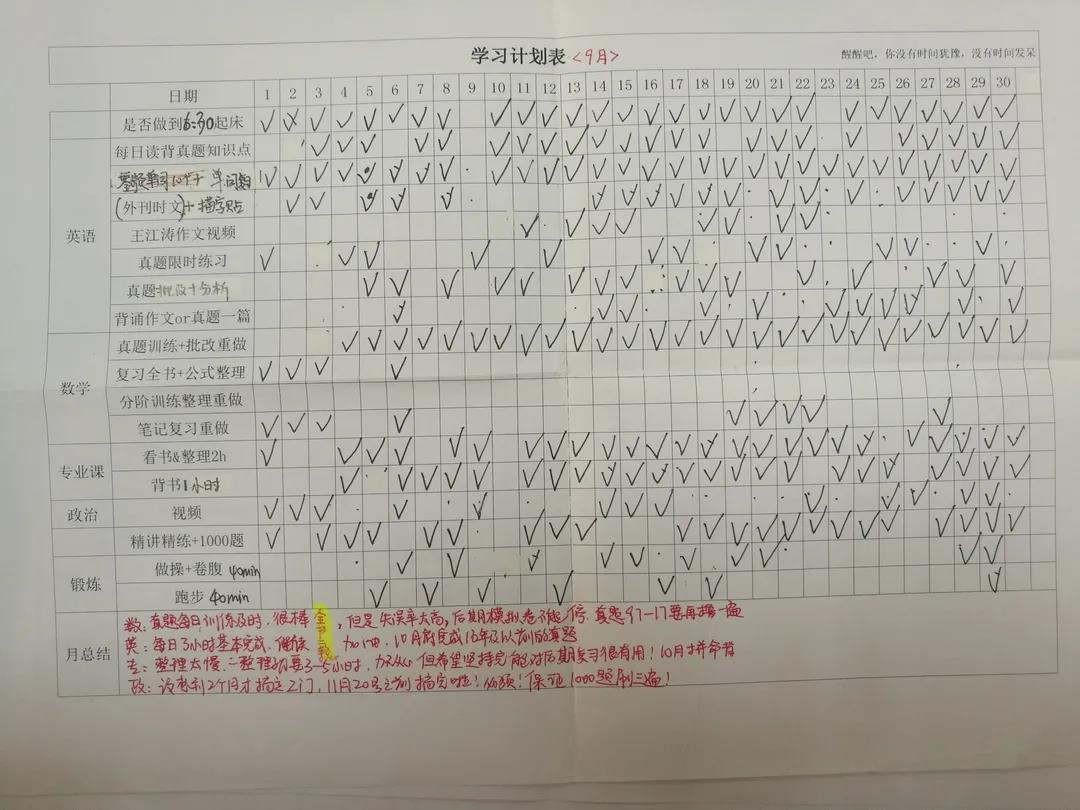 学习计划表<9月>
醒醒吧，你没有时间犹豫，没有时间发呆
日期 1 2 3 4 5 6 7 8 9 10 11 12 13 14 15 16 17 18 19 20 21 22 23 24 25 26 27 28 29 30
是否做到6:30起床
英语
每日读背真题知识点
单词
(外刊时文)+
王江涛作文视频
真题限时练习
真题批改+分析
背诵作文or真题一篇
数学
真题训练+批改重做
复习全书+公式整理
分阶训练整理重做
笔记复习重做
专业课
看书&整理2h
背书1小时
政治
视频
精讲精练+1000题
锻炼
做操+卷腹 40min
跑步 40min
月总结
数：真题每日训练及时，很棒，但是失误率太高，后期模拟卷不能停，真题97-17要再撸一遍
全书二轮
英：每日3小时基本完成，继续加油，10月前完成16年及以前的真题
专：整理太慢，一整理就要3-5小时，但希望坚持完能对后期复习很有用！10月拼命背
政：没想到2个月才搞定2门，11月20号之前搞完啦！必须！保证1000题刷三遍！